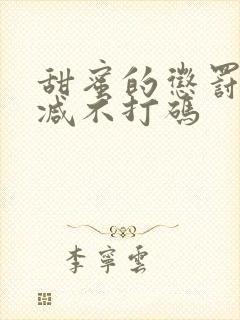 甜蜜的懲罰
减不打碼
李寧雲